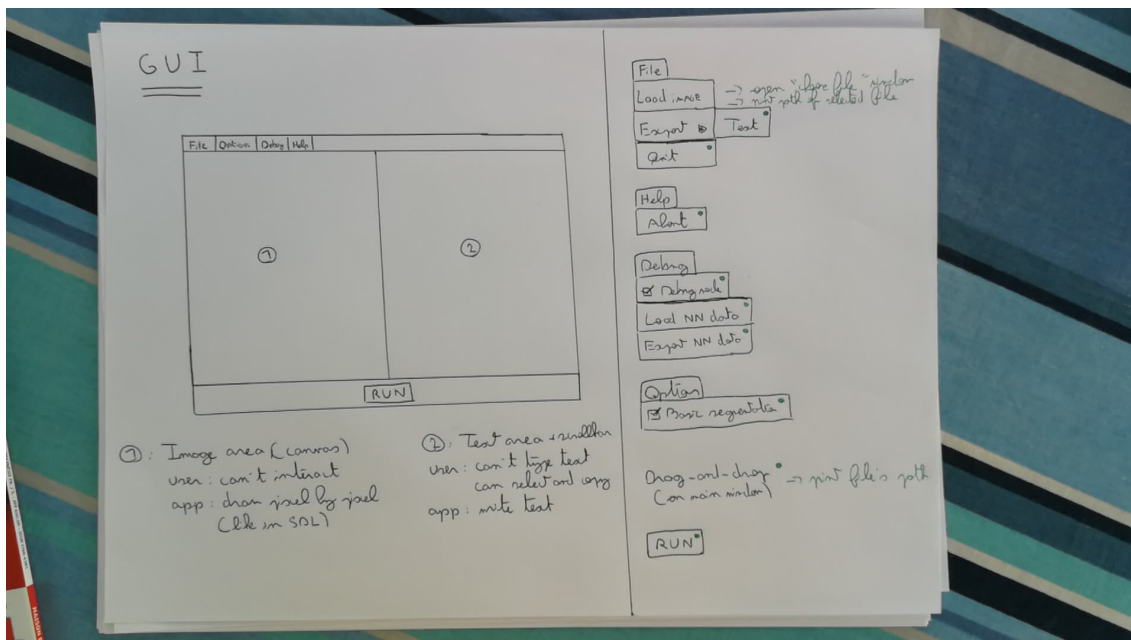 GUI
File Option Debug Help
①
②
RUN
①: Image area (canvas)
user: can't interact
app: draw pixel by pixel
(like in SDL)
②: Text area + scrollbar
user: can't type text
can select and copy
app: write text
File
Load IMAGE → open "choose file" window
→ print path of selected file
Export ▷ Text
Quit
Help
About
Debug
☑ Debug mode
Load NN data
Export NN data
Option
☑ Basic segmentation
Drag-and-drop → print file's path
(on main window)
RUN